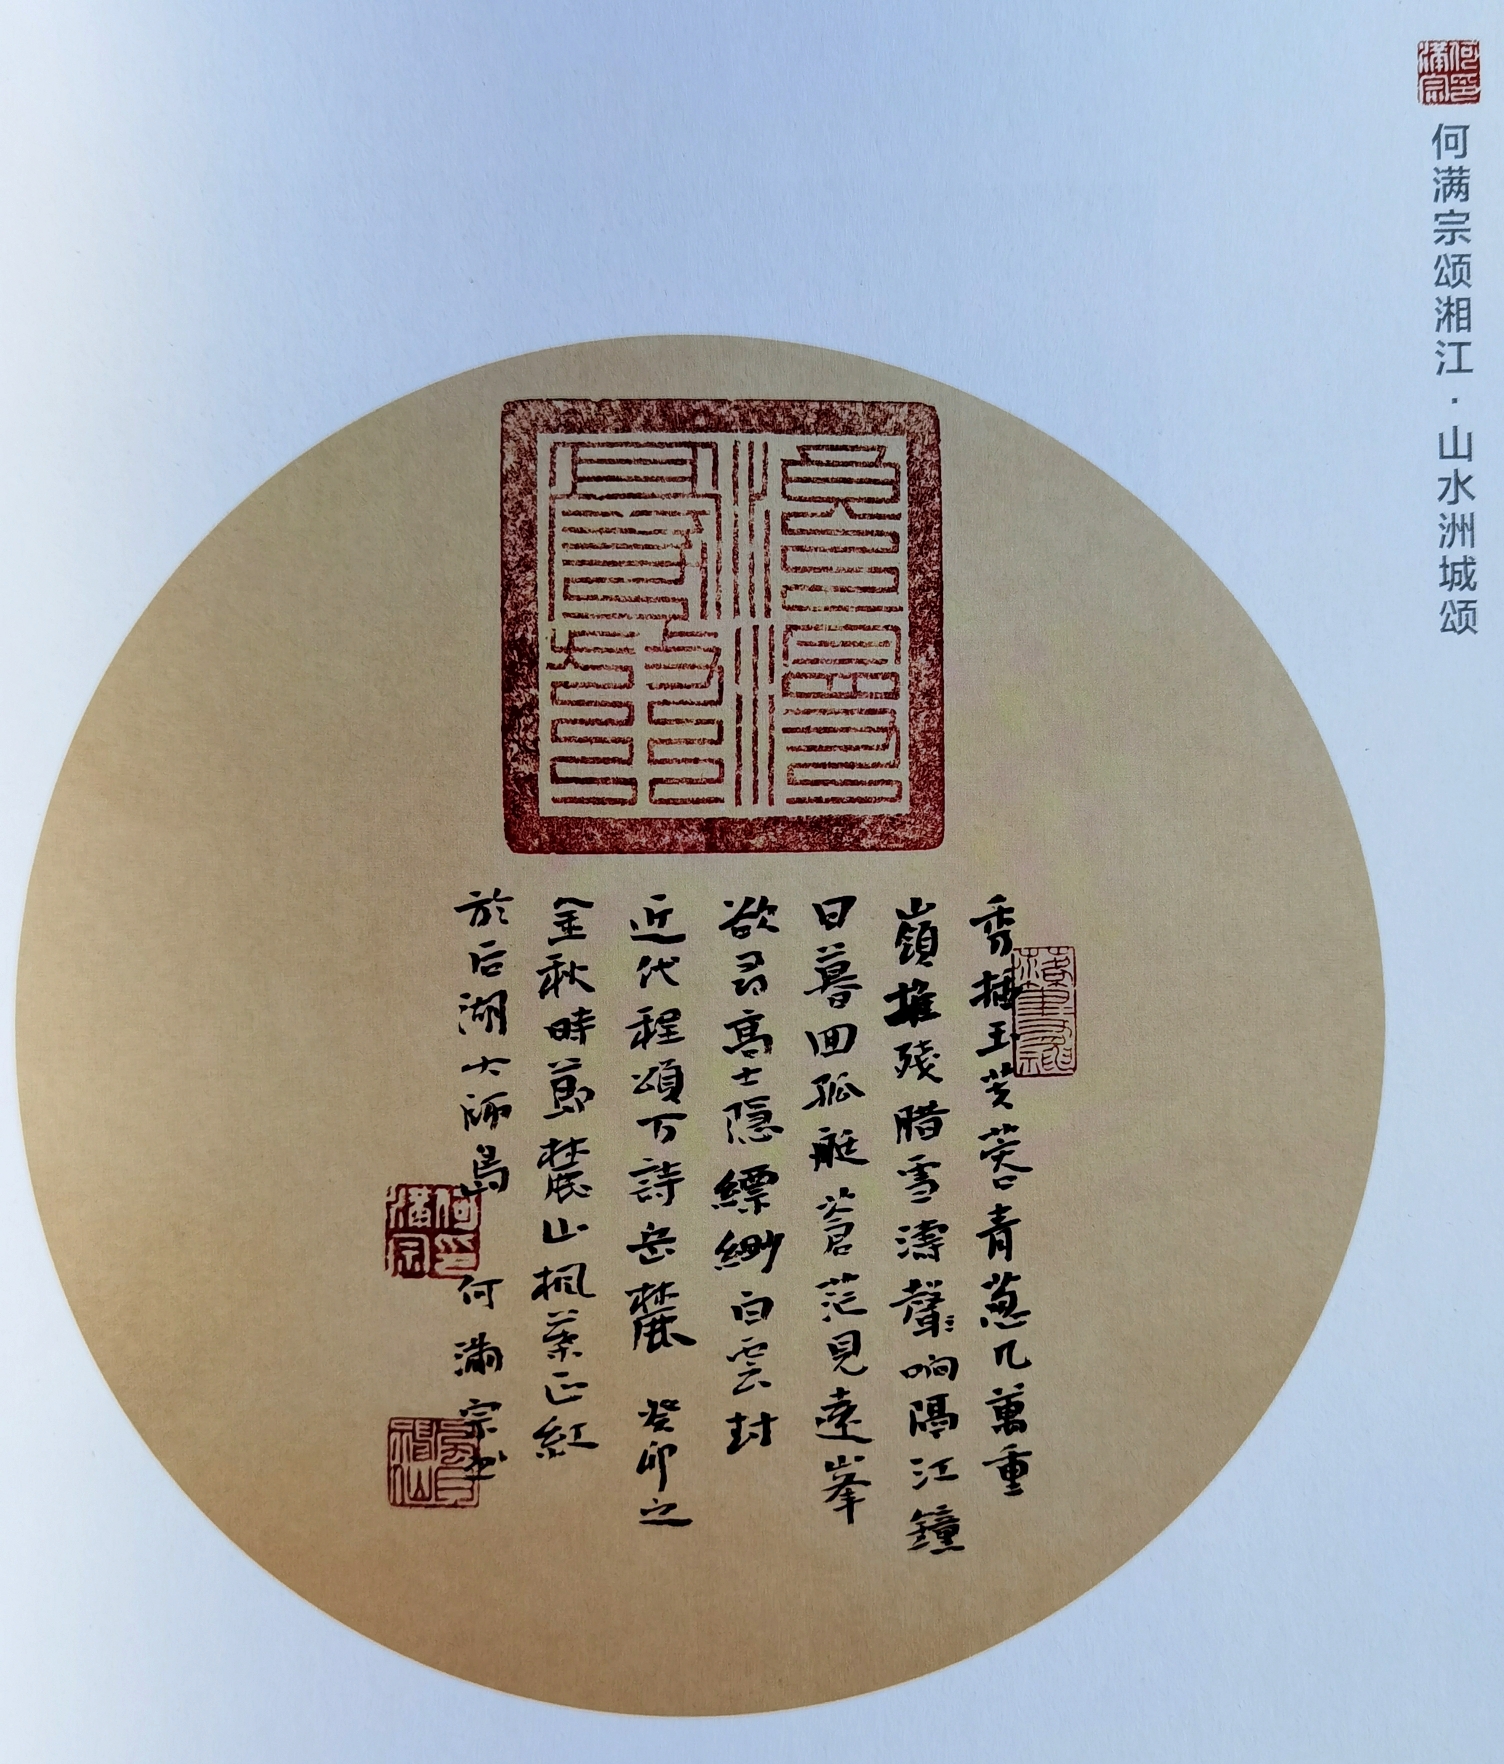 何满宗颂湘江·山水洲城颂
何满宗印
秀插玉芙蓉青葱几萬重
嶺堆殘腊雪濤聲响隔江鐘
日暮回孤艇蒼茫見遠峯
欲尋高士隱縹緲白雲封
近代程頌万詩岳麓 癸卯之
金秋時節麓山楓葉正紅
於后湖大师島 何滿宗書
何满宗印